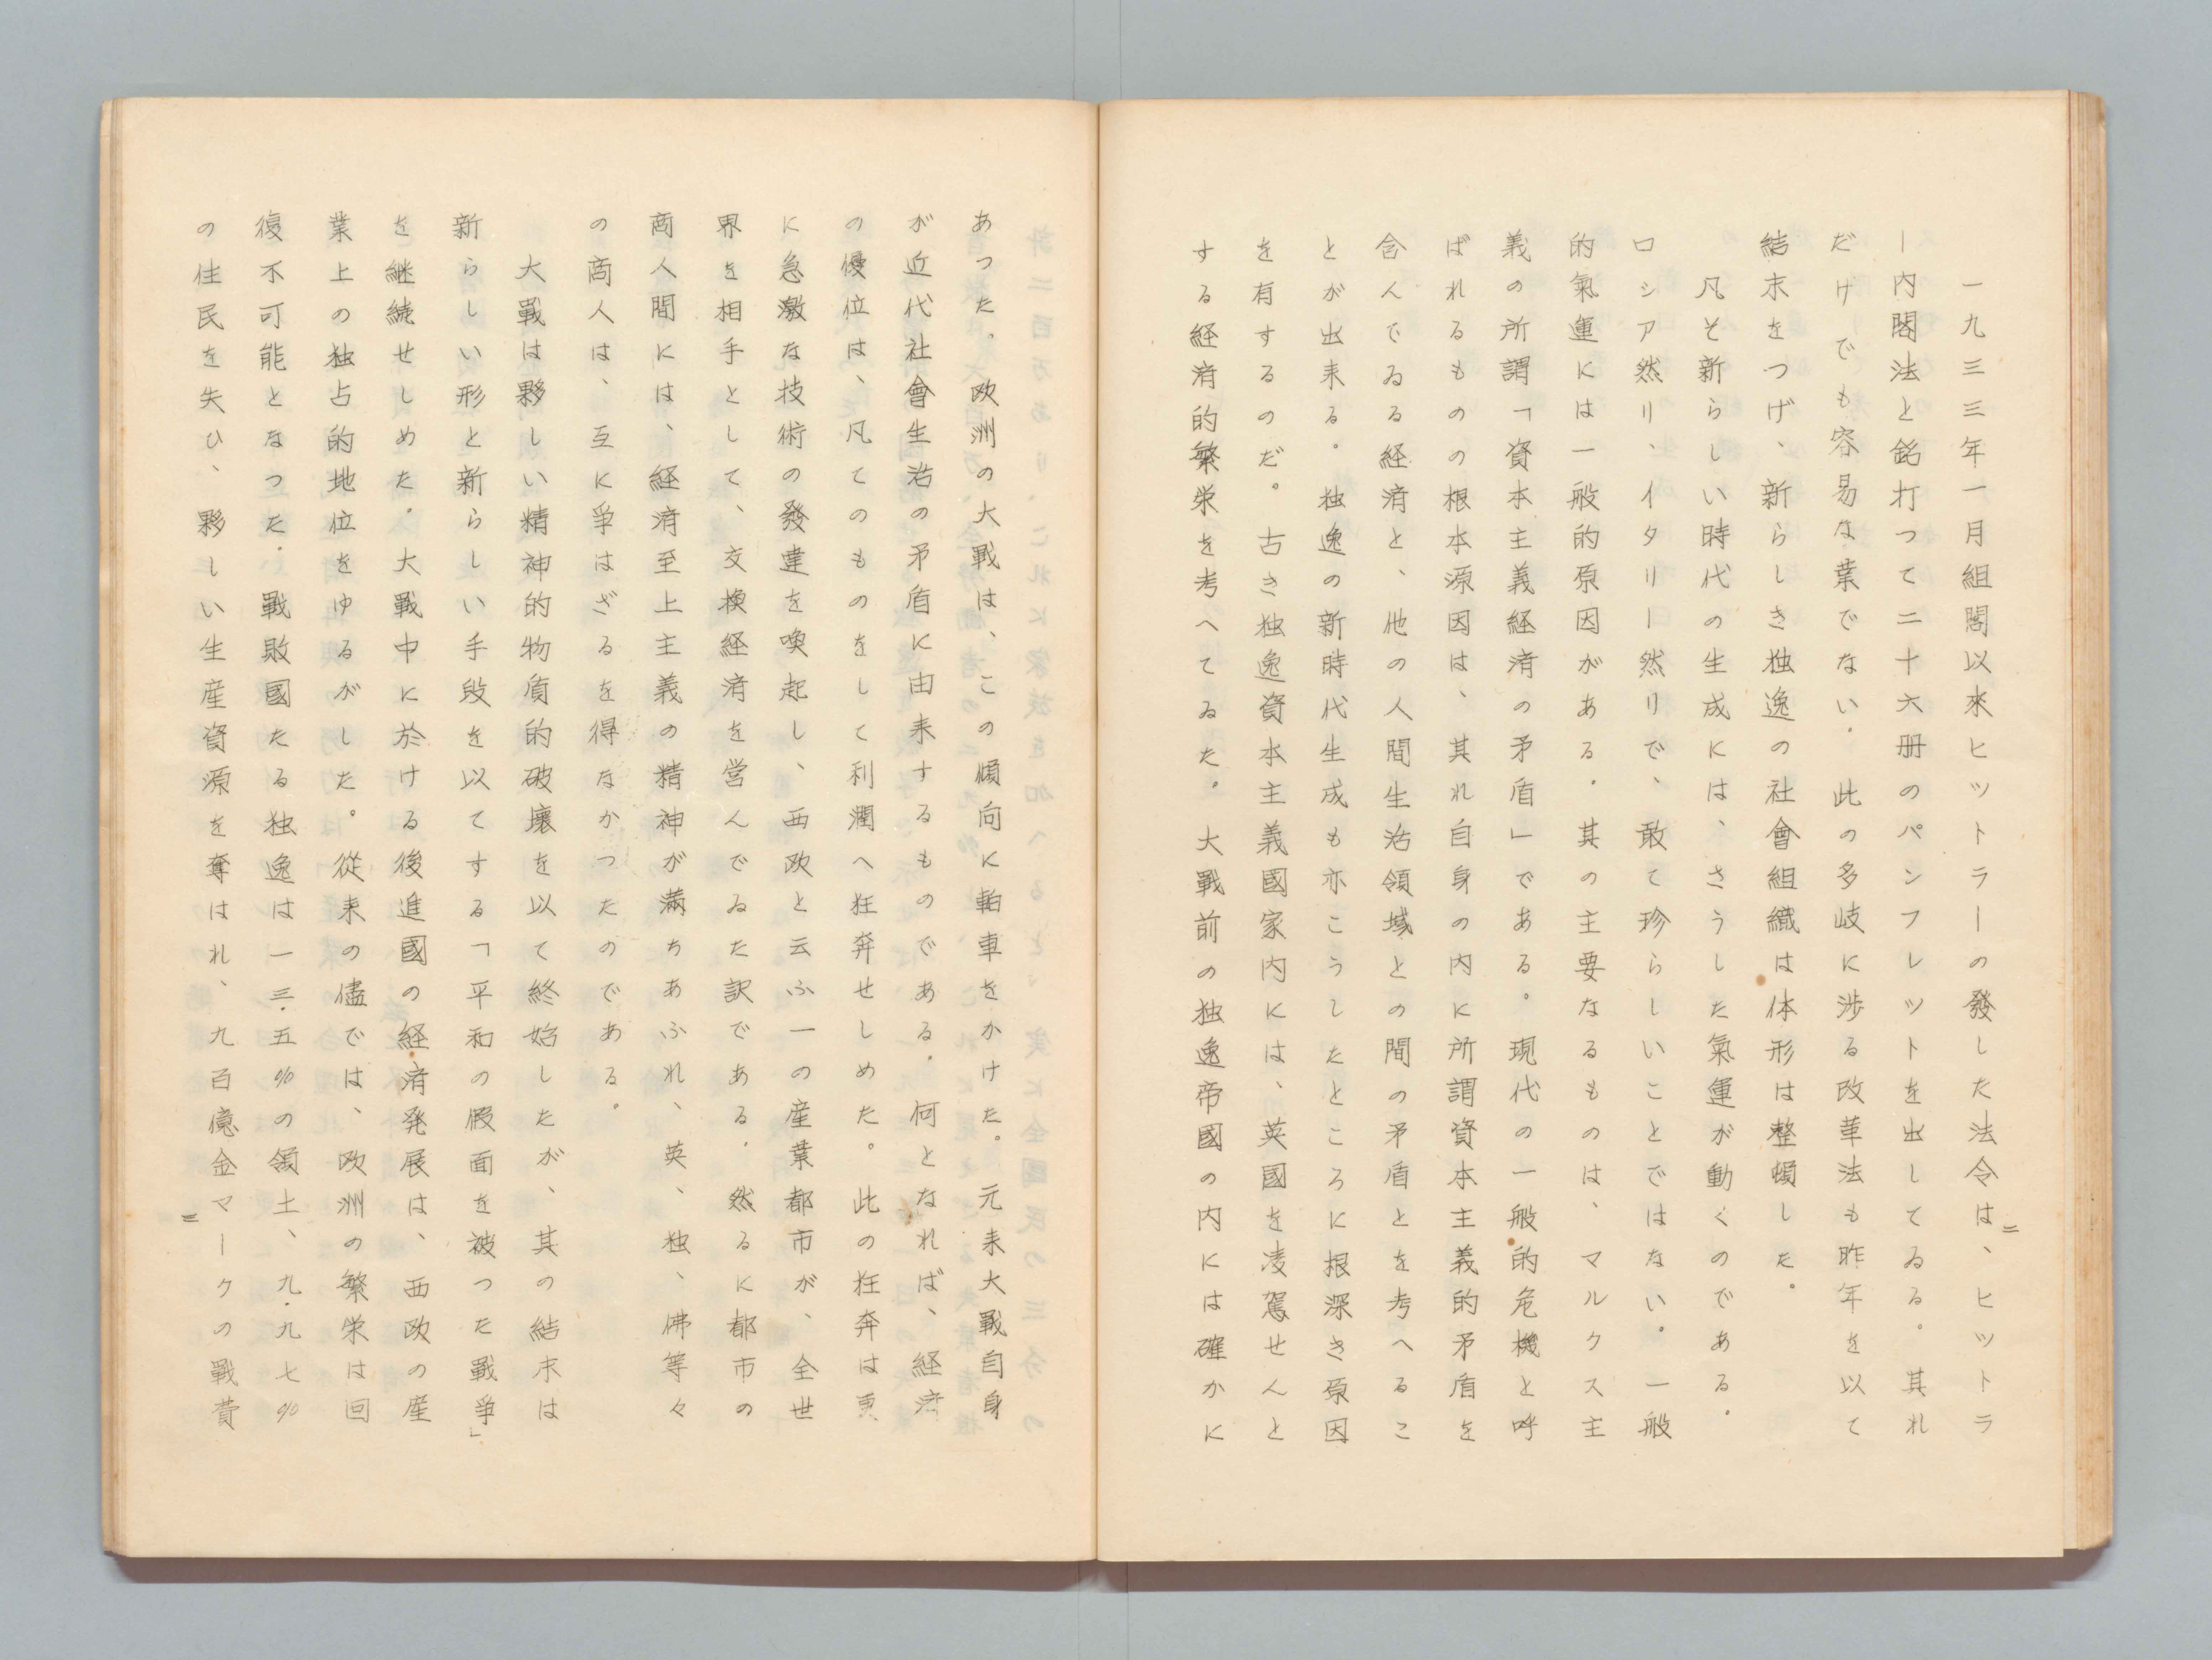 一九三三年一月組閣以來ヒットラーの發した法令は、ヒットラ
ー内閣法と銘打つて二十六册のパンフレットを出してゐる。其れ
だけでも容易な業でない。此の多岐に渉る改革法も昨年を以て
結末をつげ、新らしき独逸の社會組織は体形は整頓した。
凡そ新らしい時代の生成には、さうした氣運が動くのである。
ロシア然リ、イタリー然リで、敢て珍らしいことではない。一般
的氣運には一般的原因がある。其の主要なるものは、マルクス主
義の所謂「資本主義経済の矛盾」である。現代の一般的危機と呼
ばれるものの根本源因は、其れ自身の内に所謂資本主義的矛盾を
含んでゐる経済と、他の人間生活領域との間の矛盾とを考へるこ
とが出来る。独逸の新時代生成も亦こうしたところに根深き原因
を有するのだ。古き独逸資本主義國家内には、英國を凌駕せんと
する経済的繁栄を考へてゐた。大戰前の独逸帝國の内には確かに
二
あつた。欧洲の大戰は、この傾向に軩車をかけた。元来大戰自身
が近代社會生活の矛盾に由来するものである。何となれば、経済
の優位は、凡てのものをして利潤へ狂奔せしめた。此の狂奔は更
に急激な技術の發達を喚起し、西欧と云ふ一の産業都市が、全世
界を相手として、交換経済を営んでゐた訳である。然るに都市の
商人間には、経済至上主義の精神が満ちあふれ、英、独、佛等々
の商人は、互に爭はざるを得なかつたのである。
大戰は夥しい精神的物質的破壞を以て終始したが、其の結末は
新らしい形と新らしい手段を以てする「平和の假面を被つた戰爭」
を継続せしめた。大戰中に於ける後進國の経済発展は、西欧の産
業上の独占的地位をゆるがした。從来の儘では、欧洲の繁栄は回
復不可能となつた。戰敗國たる独逸は一三・五%の領土、九・九七%
の住民を失ひ、夥しい生産資源を奪はれ、九百億金マークの戰費
三